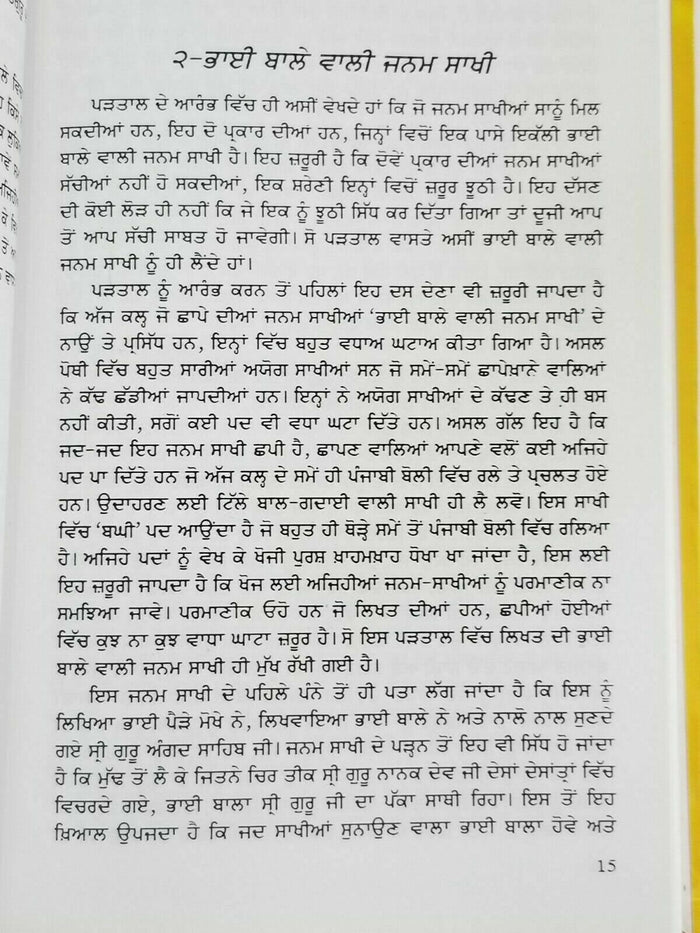 ੨-ਭਾਈ ਬਾਲੇ ਵਾਲੀ ਜਨਮ ਸਾਖੀ
ਪੜਤਾਲ ਦੇ ਆਰੰਭ ਵਿੱਚ ਹੀ ਅਸੀਂ ਵੇਖਦੇ ਹਾਂ ਕਿ ਜੋ ਜਨਮ ਸਾਖੀਆਂ ਸਾਨੂੰ ਮਿਲ
ਸਕਦੀਆਂ ਹਨ, ਇਹ ਦੋ ਪ੍ਰਕਾਰ ਦੀਆਂ ਹਨ, ਜਿਨ੍ਹਾਂ ਵਿਚੋਂ ਇਕ ਪਾਸੇ ਇਕੱਲੀ ਭਾਈ
ਬਾਲੇ ਵਾਲੀ ਜਨਮ ਸਾਖੀ ਹੈ। ਇਹ ਜ਼ਰੂਰੀ ਹੈ ਕਿ ਦੋਵੇਂ ਪ੍ਰਕਾਰ ਦੀਆਂ ਜਨਮ ਸਾਖੀਆਂ
ਸੱਚੀਆਂ ਨਹੀਂ ਹੋ ਸਕਦੀਆਂ, ਇਕ ਸ਼ਰੇਣੀ ਇਨ੍ਹਾਂ ਵਿਚੋਂ ਜ਼ਰੂਰ ਝੂਠੀ ਹੈ। ਇਹ ਦੱਸਣ
ਦੀ ਕੋਈ ਲੋੜ ਹੀ ਨਹੀਂ ਕਿ ਜੇ ਇਕ ਨੂੰ ਝੂਠੀ ਸਿੱਧ ਕਰ ਦਿੱਤਾ ਗਿਆ ਤਾਂ ਦੂਜੀ ਆਪ
ਤੋਂ ਆਪ ਸੱਚੀ ਸਾਬਤ ਹੋ ਜਾਵੇਗੀ। ਸੋ ਪੜਤਾਲ ਵਾਸਤੇ ਅਸੀਂ ਭਾਈ ਬਾਲੇ ਵਾਲੀ
ਜਨਮ ਸਾਖੀ ਨੂੰ ਹੀ ਲੈਂਦੇ ਹਾਂ।
ਪੜਤਾਲ ਨੂੰ ਆਰੰਭ ਕਰਨ ਤੋਂ ਪਹਿਲਾਂ ਇਹ ਦਸ ਦੇਣਾ ਵੀ ਜ਼ਰੂਰੀ ਜਾਪਦਾ ਹੈ
ਕਿ ਅੱਜ ਕਲ੍ਹ ਜੋ ਛਾਪੇ ਦੀਆਂ ਜਨਮ ਸਾਖੀਆਂ ‘ਭਾਈ ਬਾਲੇ ਵਾਲੀ ਜਨਮ ਸਾਖੀ’ ਦੇ
ਨਾਉਂ ਤੇ ਪ੍ਰਸਿੱਧ ਹਨ, ਇਨ੍ਹਾਂ ਵਿੱਚ ਬਹੁਤ ਵਧਾਅ ਘਟਾਅ ਕੀਤਾ ਗਿਆ ਹੈ। ਅਸਲ
ਪੋਥੀ ਵਿੱਚ ਬਹੁਤ ਸਾਰੀਆਂ ਅਯੋਗ ਸਾਖੀਆਂ ਸਨ ਜੋ ਸਮੇਂ-ਸਮੇਂ ਛਾਪੇਖ਼ਾਨੇ ਵਾਲਿਆਂ
ਨੇ ਕੱਢ ਛੱਡੀਆਂ ਜਾਪਦੀਆਂ ਹਨ। ਇਨ੍ਹਾਂ ਨੇ ਅਯੋਗ ਸਾਖੀਆਂ ਦੇ ਕੱਢਣ ਤੇ ਹੀ ਬਸ
ਨਹੀਂ ਕੀਤੀ, ਸਗੋਂ ਕਈ ਪਦ ਵੀ ਵਧਾ ਘਟਾ ਦਿੱਤੇ ਹਨ। ਅਸਲ ਗੱਲ ਇਹ ਹੈ ਕਿ
ਜਦ-ਜਦ ਇਹ ਜਨਮ ਸਾਖੀ ਛਪੀ ਹੈ, ਛਾਪਣ ਵਾਲਿਆਂ ਆਪਣੇ ਵਲੋਂ ਕਈ ਅਜਿਹੇ
ਪਦ ਪਾ ਦਿੱਤੇ ਹਨ ਜੋ ਅੱਜ ਕਲ੍ਹ ਦੇ ਸਮੇਂ ਹੀ ਪੰਜਾਬੀ ਬੋਲੀ ਵਿੱਚ ਰਲੇ ਤੇ ਪ੍ਰਚਲਤ ਹੋਏ
ਹਨ। ਉਦਾਹਰਣ ਲਈ ਟਿੱਲੇ ਬਾਲ-ਗਦਾਈ ਵਾਲੀ ਸਾਖੀ ਹੀ ਲੈ ਲਵੋ। ਇਸ ਸਾਖੀ
ਵਿੱਚ ‘ਬਘੀ’ ਪਦ ਆਉਂਦਾ ਹੈ ਜੋ ਬਹੁਤ ਹੀ ਥੋੜ੍ਹੇ ਸਮੇਂ ਤੋਂ ਪੰਜਾਬੀ ਬੋਲੀ ਵਿੱਚ ਰਲਿਆ
ਹੈ। ਅਜਿਹੇ ਪਦਾਂ ਨੂੰ ਵੇਖ ਕੇ ਖੋਜੀ ਪੁਰਸ਼ ਖ਼ਾਹਮਖ਼ਾਹ ਧੋਖਾ ਖਾ ਜਾਂਦਾ ਹੈ, ਇਸ ਲਈ
ਇਹ ਜ਼ਰੂਰੀ ਜਾਪਦਾ ਹੈ ਕਿ ਖੋਜ ਲਈ ਅਜਿਹੀਆਂ ਜਨਮ-ਸਾਖੀਆਂ ਨੂੰ ਪਰਮਾਣੀਕ ਨਾ
ਸਮਝਿਆ ਜਾਵੇ। ਪਰਮਾਣੀਕ ਓਹੋ ਹਨ ਜੋ ਲਿਖਤ ਦੀਆਂ ਹਨ, ਛਪੀਆਂ ਹੋਈਆਂ
ਵਿੱਚ ਕੁਝ ਨਾ ਕੁਝ ਵਾਧਾ ਘਾਟਾ ਜ਼ਰੂਰ ਹੈ। ਸੋ ਇਸ ਪੜਤਾਲ ਵਿੱਚ ਲਿਖਤ ਦੀ ਭਾਈ
ਬਾਲੇ ਵਾਲੀ ਜਨਮ ਸਾਖੀ ਹੀ ਮੁੱਖ ਰੱਖੀ ਗਈ ਹੈ।
ਇਸ ਜਨਮ ਸਾਖੀ ਦੇ ਪਹਿਲੇ ਪੰਨੇ ਤੋਂ ਹੀ ਪਤਾ ਲੱਗ ਜਾਂਦਾ ਹੈ ਕਿ ਇਸ ਨੂੰ
ਲਿਖਿਆ ਭਾਈ ਪੈੜੇ ਮੋਖੇ ਨੇ, ਲਿਖਵਾਇਆ ਭਾਈ ਬਾਲੇ ਨੇ ਅਤੇ ਨਾਲੋ ਨਾਲ ਸੁਣਦੇ
ਗਏ ਸ੍ਰੀ ਗੁਰੂ ਅੰਗਦ ਸਾਹਿਬ ਜੀ। ਜਨਮ ਸਾਖੀ ਦੇ ਪੜ੍ਹਨ ਤੋਂ ਇਹ ਵੀ ਸਿੱਧ ਹੋ ਜਾਂਦਾ
ਹੈ ਕਿ ਮੁੱਢ ਤੋਂ ਲੈ ਕੇ ਜਿਤਨੇ ਚਿਰ ਤੀਕ ਸ੍ਰੀ ਗੁਰੂ ਨਾਨਕ ਦੇਵ ਜੀ ਦੇਸਾਂ ਦੇਸਾਂਤ੍ਰਾਂ ਵਿੱਚ
ਵਿਚਰਦੇ ਗਏ, ਭਾਈ ਬਾਲਾ ਸ੍ਰੀ ਗੁਰੂ ਜੀ ਦਾ ਪੱਕਾ ਸਾਥੀ ਰਿਹਾ। ਇਸ ਤੋਂ ਇਹ
ਖ਼ਿਆਲ ਉਪਜਦਾ ਹੈ ਕਿ ਜਦ ਸਾਖੀਆਂ ਸੁਨਾਉਣ ਵਾਲਾ ਭਾਈ ਬਾਲਾ ਹੋਵੇ ਅਤੇ
15